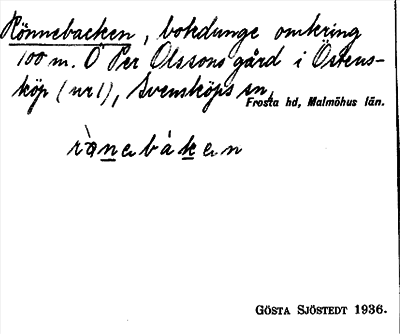 Rönnebacken, bokdunge omkring
100 m. Ö Per Olssons gård i Östens-
köp (nr 1), Svensköps sn,
Frosta hd, Malmöhus län.
rònebákεn
GÖSTA SJÖSTEDT 1936.